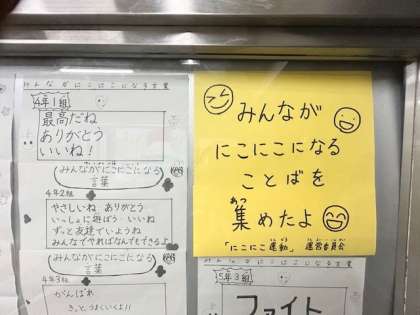 みんながにこにこになる言葉
4年1組
最高だね
ありがとう
いいね!
みんながにこにこになる
言葉
4年2組
やさしいね ありがとう
いっしょに遊ぼう いいね
ずっと友達でいようね
みんなでやればなんでもできるよ
みんながにこにこになる
言葉
4年3組
がんばれ
きっとうまくいくよ!!
みんなが
にこにこになる
ことばを
集めたよ
あつ
「にこにこ運動」 運営委員会
みんながにこにこになる言葉
5年3組
ファイト